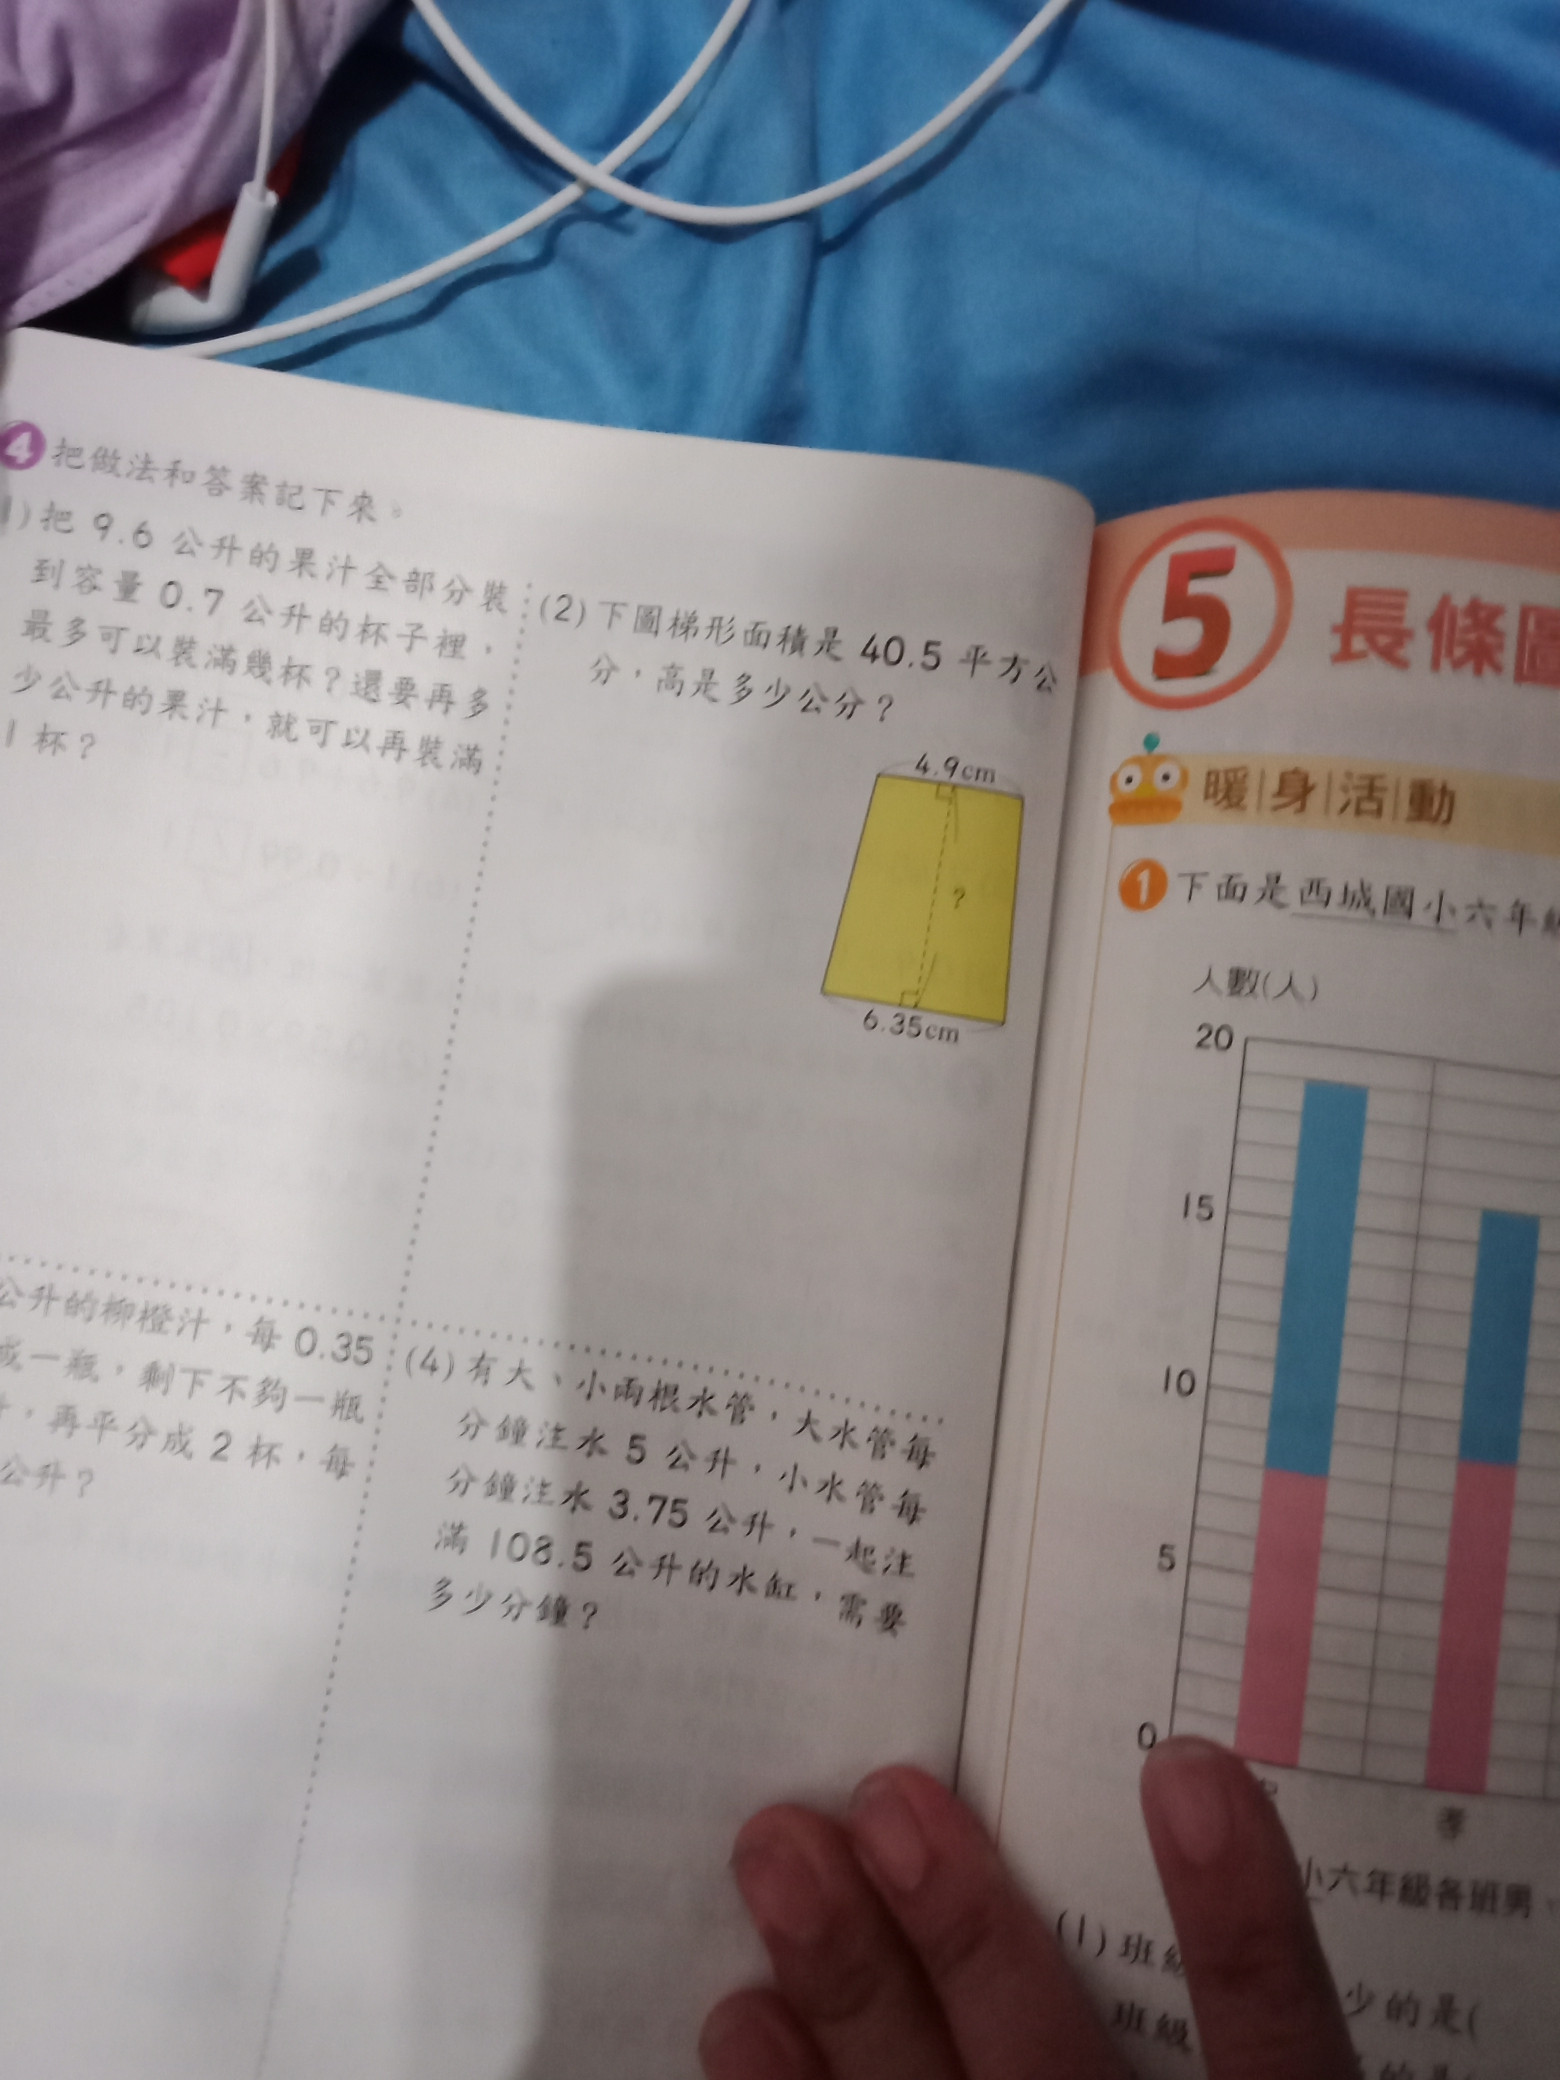 4 把做法和答案記下來。
1) 把 9.6 公升的果汁全部分裝
到容量 0.7 公升的杯子裡，
最多可以裝滿幾杯？還要再多
少公升的果汁，就可以再裝滿
1 杯？
(2) 下圖梯形面積是 40.5 平方公
分，高是多少公分？
4.9cm
?
6.35cm
公升的柳橙汁，每 0.35
成一瓶，剩下不夠一瓶
，再平分成 2 杯，每
公升？
(4) 有大、小兩根水管，大水管每
分鐘注水 5 公升，小水管每
分鐘注水 3.75 公升，一起注
滿 108.5 公升的水缸，需要
多少分鐘？
5 長條圖
暖身活動
1 下面是西城國小六年級
人數(人)
20
15
10
5
0
孝
小六年級各班男
(1) 班級
少的是(
班級